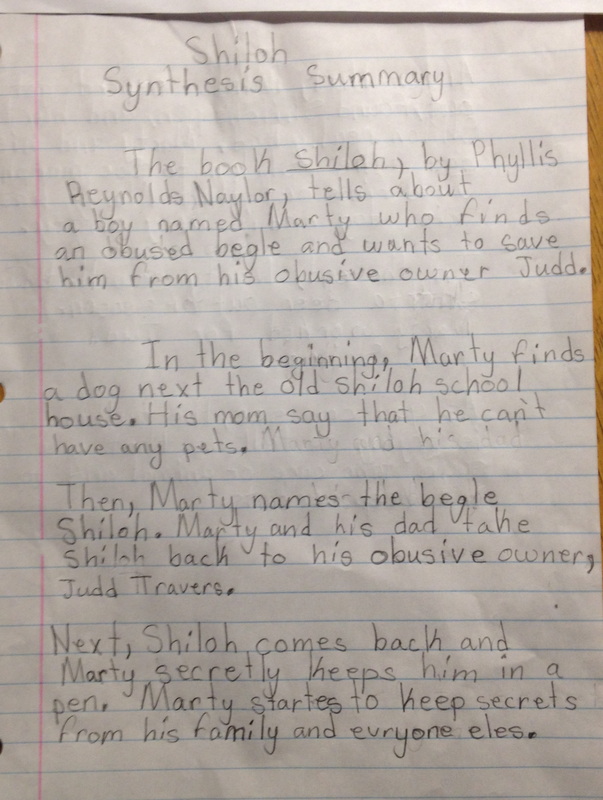 Shiloh
Synthesis Summary
The book Shiloh, by Phyllis
Reynolds Naylor, tells about
a boy named Marty who finds
an abused begle and wants to save
him from his abusive owner Judd.
In the beginning, Marty finds
a dog next the old shiloh school
house. His mom say that he can't
have any pets. Marty and his dad
Then, Marty names the begle
Shiloh. Marty and his dad take
Shiloh back to his abusive owner,
Judd Travers.
Next, Shiloh comes back and
Marty secretly keeps him in a
pen. Marty startes to keep secrets
from his family and evryone eles.